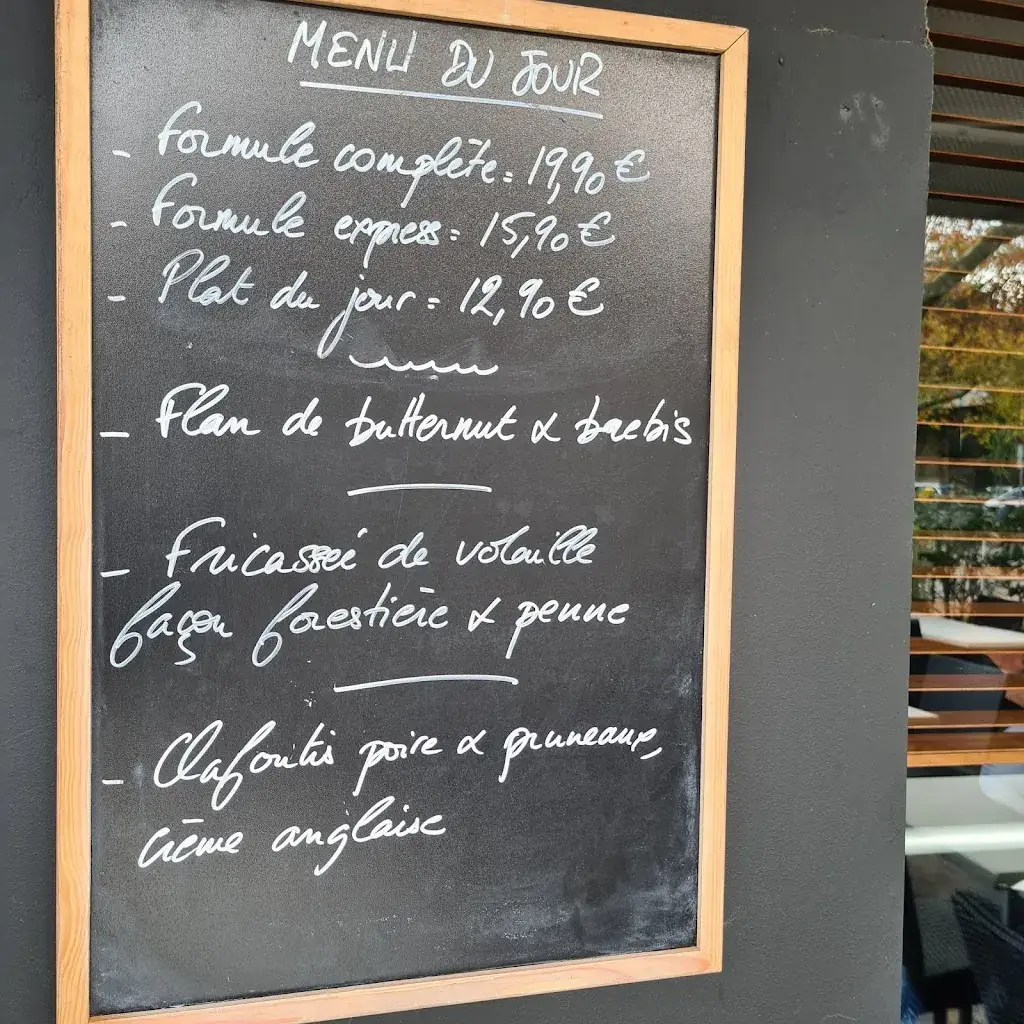 MENU DU JOUR
- Formule complète = 19,90 €
- Formule express = 15,90 €
- Plat du jour = 12,90 €
- Flan de butternut & brebis
- Fricassée de volaille
façon forestière & penne
- Clafoutis poire & pruneaux,
crème anglaise